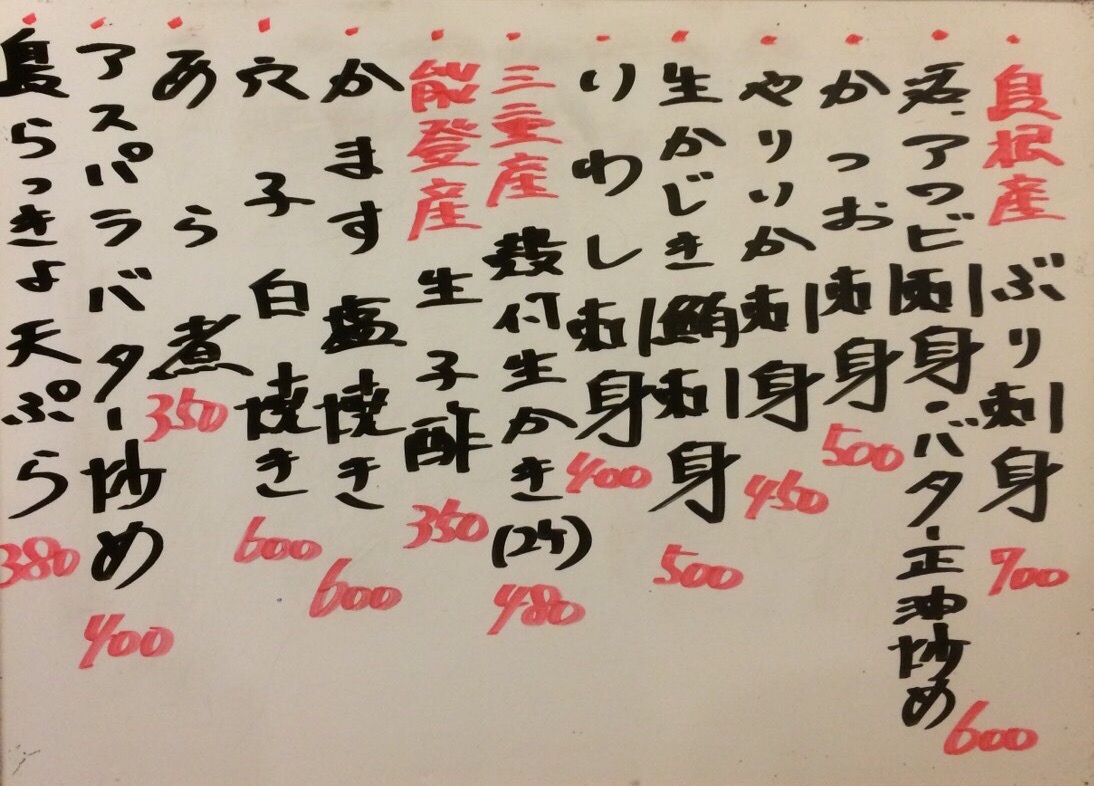 島根産 ぶり刺身 700
アワビ刺身・バター正油炒め 600
かつお刺身 500
やりいか刺身 450
生かじき鮪刺身 500
いわし刺身 400
三重産 殻付生かき(2ケ) 480
能登産 生子酢 350
かます塩焼き 600
穴子白焼き 600
あら煮 350
アスパラバター炒め 400
島らっきょ天ぷら 380